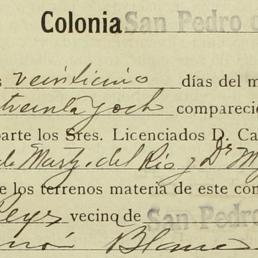 Colonia San Pedro d
s veinticinco días del m
treinta y och comparecie
parte los Sres. Licenciados D. Ca
de Marty. del Río y Dr M
e los terrenos materia de este con
Reyes vecino de San Pedro
món Blanc